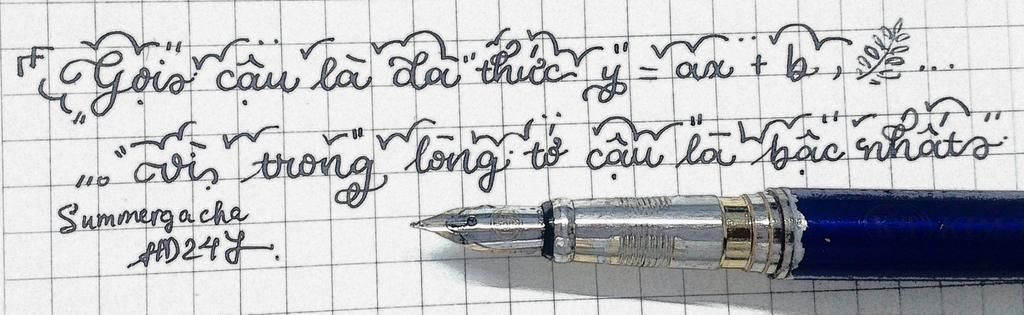 Gọi cậu là đa thức y = ax + b, ...
... vì trong lòng tớ cậu là bậc nhất
Summergacha
HD24Y.